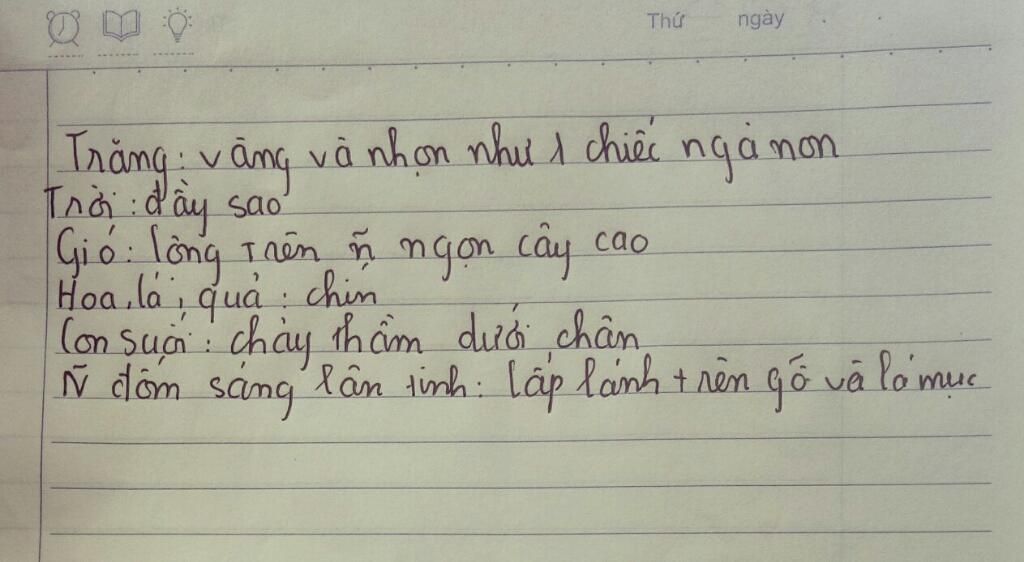 Thứ ngày
Trăng: vàng và nhọn như 1 chiếc ngà non
Trời: đầy sao
Gió: lồng trên ~n ngọn cây cao
Hoa, lá, quả: chín
Con suối: chảy thầm dưới chân
~N đốm sáng lân tinh: lấp lánh trên gỗ và lá mục